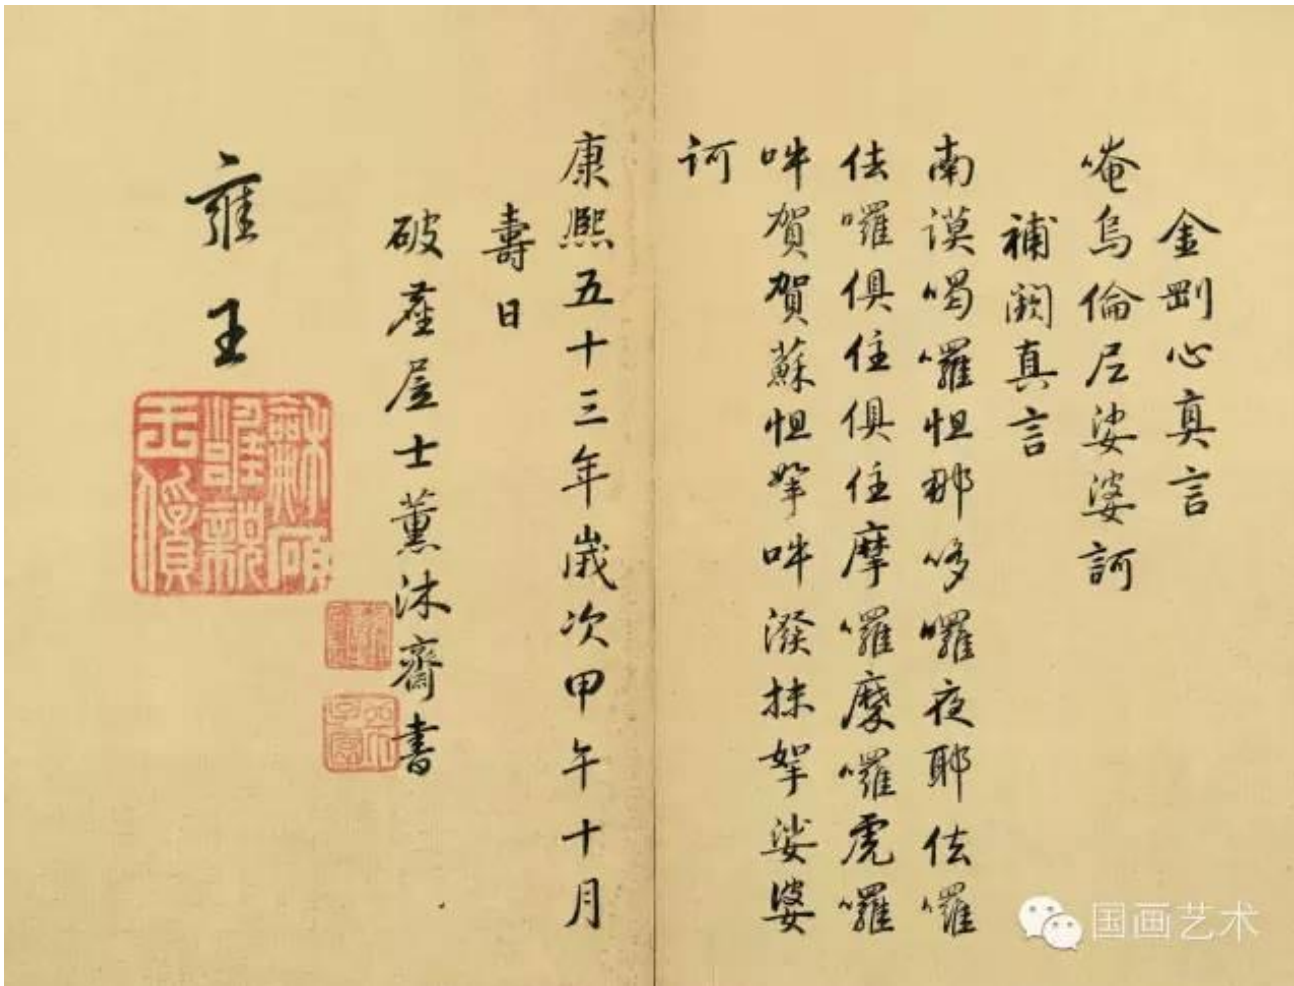 金剛心真言
唵烏倫尼娑婆訶
補闕真言
南謨喝囉怛那哆囉夜耶佉囉
佉囉俱住俱住摩囉摩囉虎囉
吽賀賀蘇怛拏吽潑抹拏娑婆
訶
康熙五十三年歲次甲午十月
壽日
破塵居士薰沐齋書
雍王
和碩雍親王寶
国画艺术